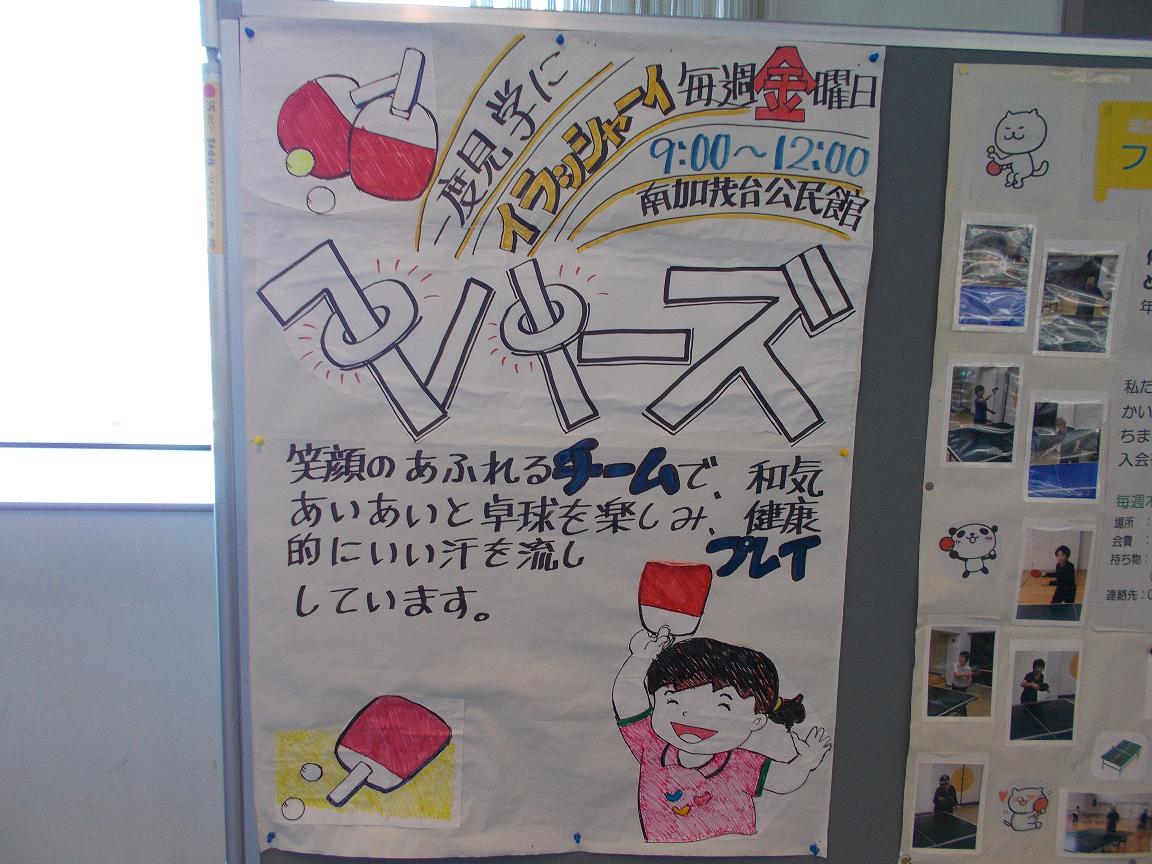 一度見学に
イラッシャーイ
毎週金曜日
9:00～12:00
南加茂台公民館
笑顔のあふれるチームで、和気
あいあいと卓球を楽しみ、健康
的にいい汗を流し プレイ
しています。
フ
年
私た
かい
ちま
入会
毎週木
場所 :
会費 :
持ち物:
連絡先:0